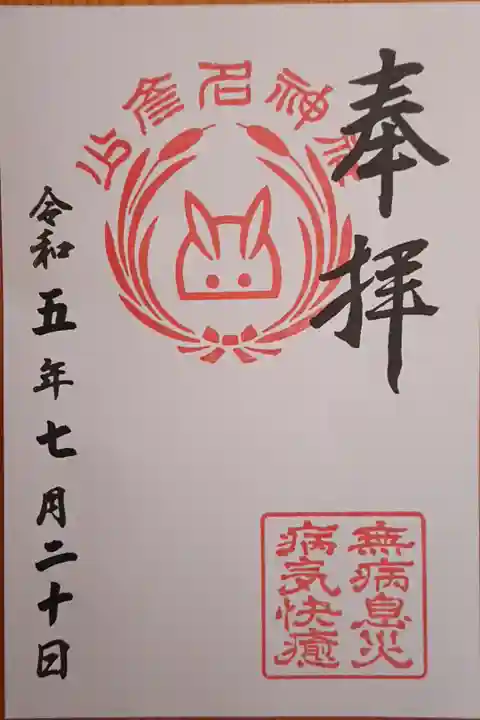 奉拝
少彦名神社
令和五年七月二十日
無病息災
病気快癒